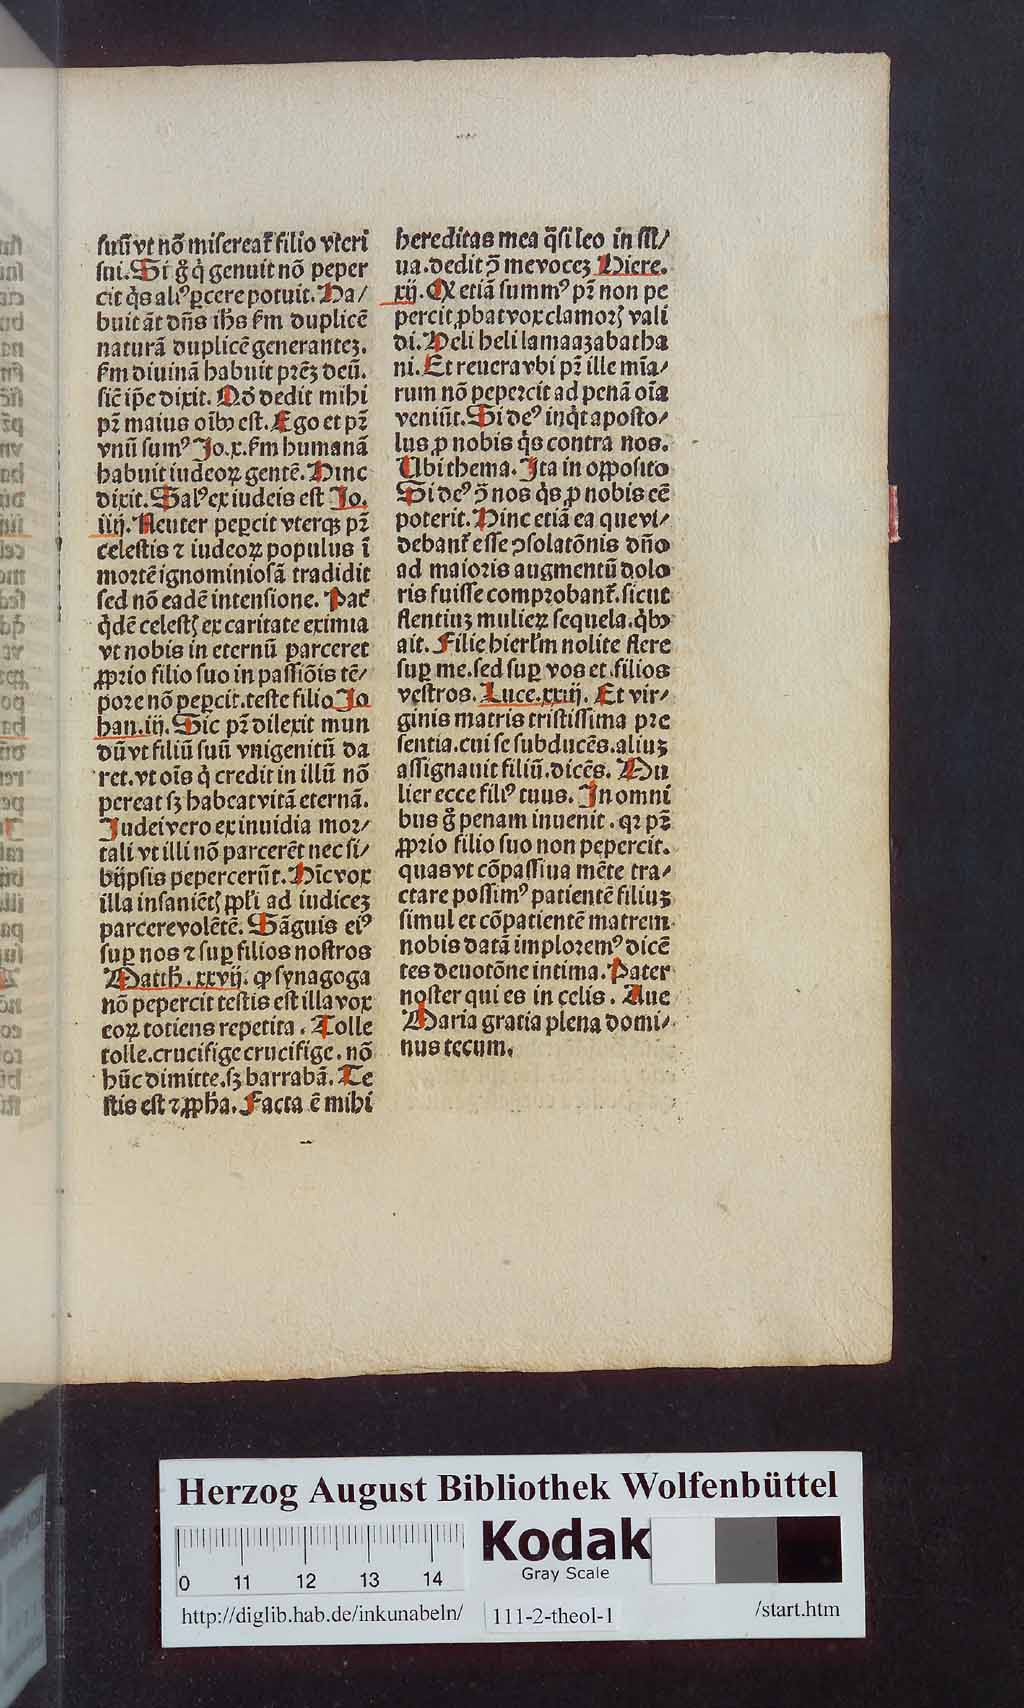 suū vt nō misereat᷑ filio vteri
sui. Si g̊ q̇ genuit nō peper
cit q̇s aliꝰ ꝑcere potuit. Ha/
buit āt dn̄s ih̄s ẜm duplicē
naturā duplicē generanteꝫ.
ẜm diuinā habuit prēꝫ deū.
sic̄ ip̄e dixit. Qḋ dedit mihi
pr̄ maius oībꝫ est. Ego et pr̄
vnū sumꝰ Jo.x. ẜm humanā
habuit iudeoꝝ gentē. Hinc
dixit. Salꝰ ex iudeis est Jo.
iiij. Neuter peꝑcit vterqꝫ pr̄
celestis ⁊ iudeoꝝ populus ī
mortē ignominiosā tradidit
sed nō eadē intensione. Pat᷑
q̇dē celestꝭ ex caritate eximia
vt nobis in eternū parceret
ꝓprio filio suo in passiōis tē/
pore nō peꝑcit. teste filio Jo
han.iij. Sic pr̄ dilexit mun
dū vt filiū suū vnigenitū da
ret. vt oīs q̇ credit in illū nō
pereat sꝫ habeat vitā eternā.
Judei vero ex inuidia mor/
tali vt illi nō parcerēt nec si/
bijpsis pepercerūt. Hīc vox
illa insaniētꝭ ppl̄i ad iudiceꝫ
parcere volētē. Sāguis eiꝰ
suꝑ nos ⁊ suꝑ filios nostros
Matth.xxvij. ꝙ synagoga
nō pepercit testis est illa vox
eoꝝ totiens repetita. Tolle
tolle. crucifige crucifige. nō
hūc dimitte. sꝫ barrabā. Te
stis est ⁊ ꝓph̄a. Facta ē mihi
hereditas mea q̄si leo in sil/
ua. dedit ꝯ̄ me voceꝫ Hiere.
xij. Q etiā summꝰ pr̄ non pe
percit ꝓbat vox clamorꝭ vali
di. Heli heli lamaazabatha
ni. Et reuera vbi pr̄ ille mīa/
rum nō pepercit ad penā oīa
veniūt. Si deꝰ inq̇t aposto/
lus ꝓ nobis q̇s contra nos.
Ubi thema. Ita in opposito
Si deꝰ ꝯ̄ nos q̇s ꝓ nobis eē
poterit. Hinc etiā ea que vi/
debant᷑ esse ꝯsolatōnis dn̄o
ad maioris augmentū dolo
ris fuisse comprobant᷑. sicut
flentiuꝫ mulieꝝ sequela. q̇bꝫ
ait. Filie hierl̄m nolite flere
suꝑ me. sed suꝑ vos et filios
vestros. Luce.xxiij. Et vir/
ginis matris tristissima pre
sentia. cui se subducēs. aliuꝫ
assignauit filiū. dicēs. Mu
lier ecce filiꝰ tuus. In omni
bus g̊ penam inuenit. qꝛ pr̄
ꝓprio filio suo non pepercit.
quas vt cōpassiua mēte tra/
ctare possimꝰ patientē filiuꝫ
simul et cōpatientē matrem
nobis datā imploremꝰ dicē
tes deuotōne intima. Pater
noster qui es in celis. Aue
Maria gratia plena domi/
nus tecum.
Herzog August Bibliothek Wolfenbüttel
Kodak
Gray Scale
0 11 12 13 14
http://diglib.hab.de/inkunabeln/
111-2-theol-1
/start.htm